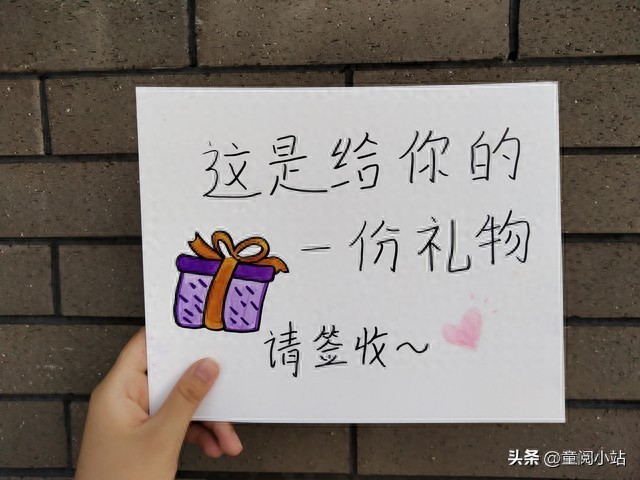 这是给你的
一份礼物
请签收～
头条 @童阅小站